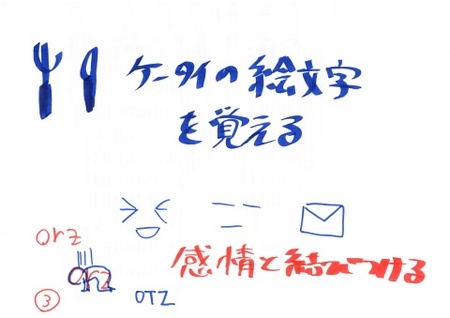 ケータイの絵文字
を覚える
orz
感情と結びつける
orz
③
OTZ